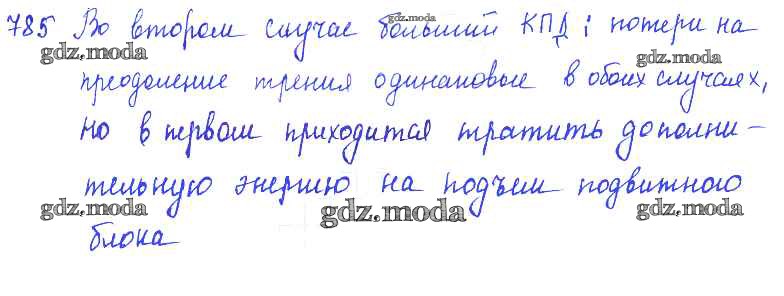 785 Во втором случае больший КПД: потери на
преодоление трения одинаковые в обоих случаях,
но в первом приходится тратить дополни-
тельную энергию на подъем подвижного
блока
gdz.moda
gdz.moda
gdz.moda
gdz.moda
gdz.moda
gdz.moda